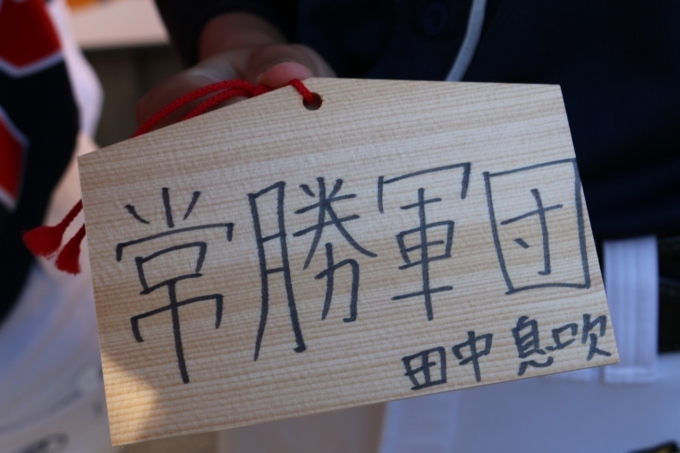 常勝軍団
田中息吹